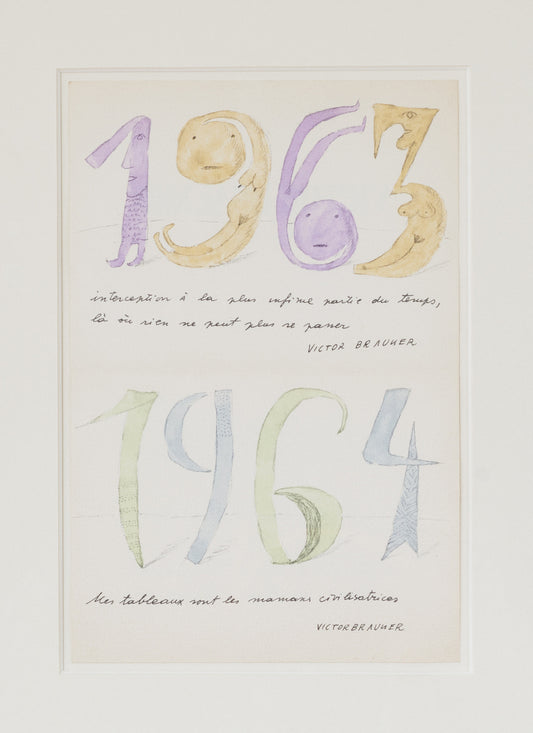 1963
interception à la plus infime partie du temps,
là où rien ne peut plus se passer
VICTOR BRAUNER
1964
Mes tableaux sont les mamans civilisatrices
VICTOR BRAUNER